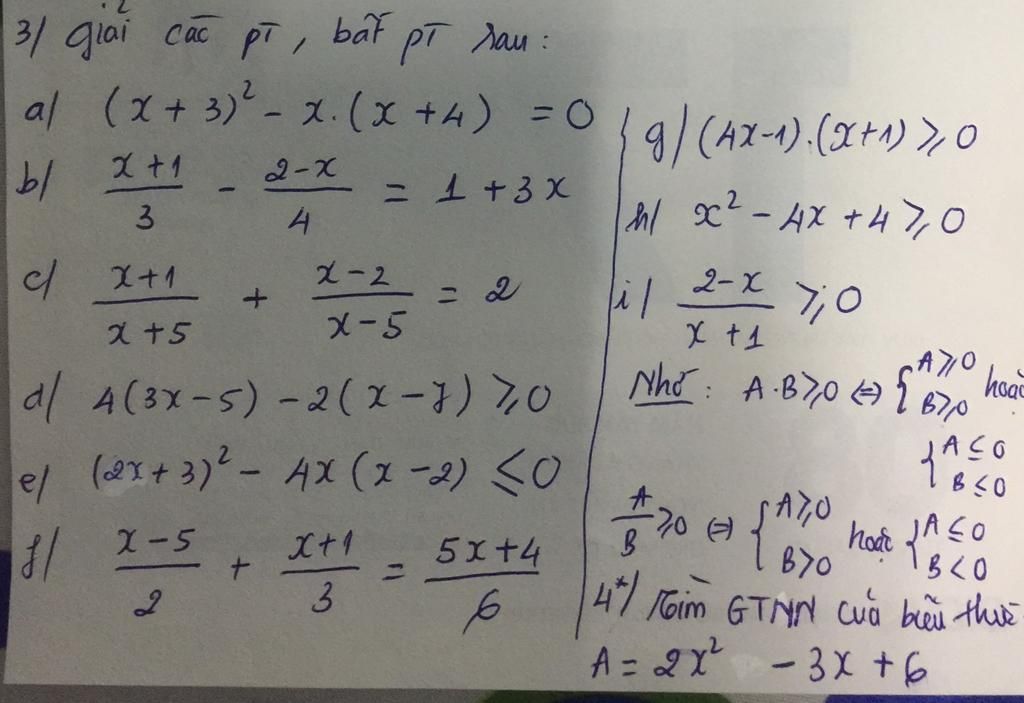 3/ giải các pt, bất pt sau:
a/ (x + 3)² - x.(x + 4) = 0
b/ \frac{x+1}{3} - \frac{2-x}{4} = 1 + 3x
c/ \frac{x+1}{x+5} + \frac{x-2}{x-5} = 2
d/ 4(3x - 5) - 2(x - 7) ≥ 0
e/ (2x + 3)² - 4x(x - 2) ≤ 0
f/ \frac{x-5}{2} + \frac{x+1}{3} = \frac{5x+4}{6}
g/ (4x-1).(x+1) ≥ 0
h/ x² - 4x + 4 ≥ 0
i/ \frac{2-x}{x+1} ≥ 0
Nhớ: A.B ≥ 0 ⇔ { A ≥ 0
B ≥ 0 hoặc
{ A ≤ 0
B ≤ 0
\frac{A}{B} ≥ 0 ⇔ { A ≥ 0
B > 0 hoặc { A ≤ 0
B < 0
4*/ Tìm GTNN của biểu thức
A = 2x² - 3x + 6